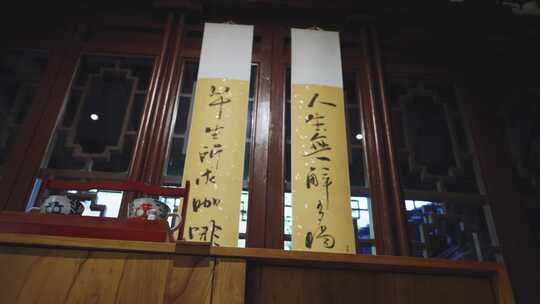 人生無解多喝
畢生所求咖啡